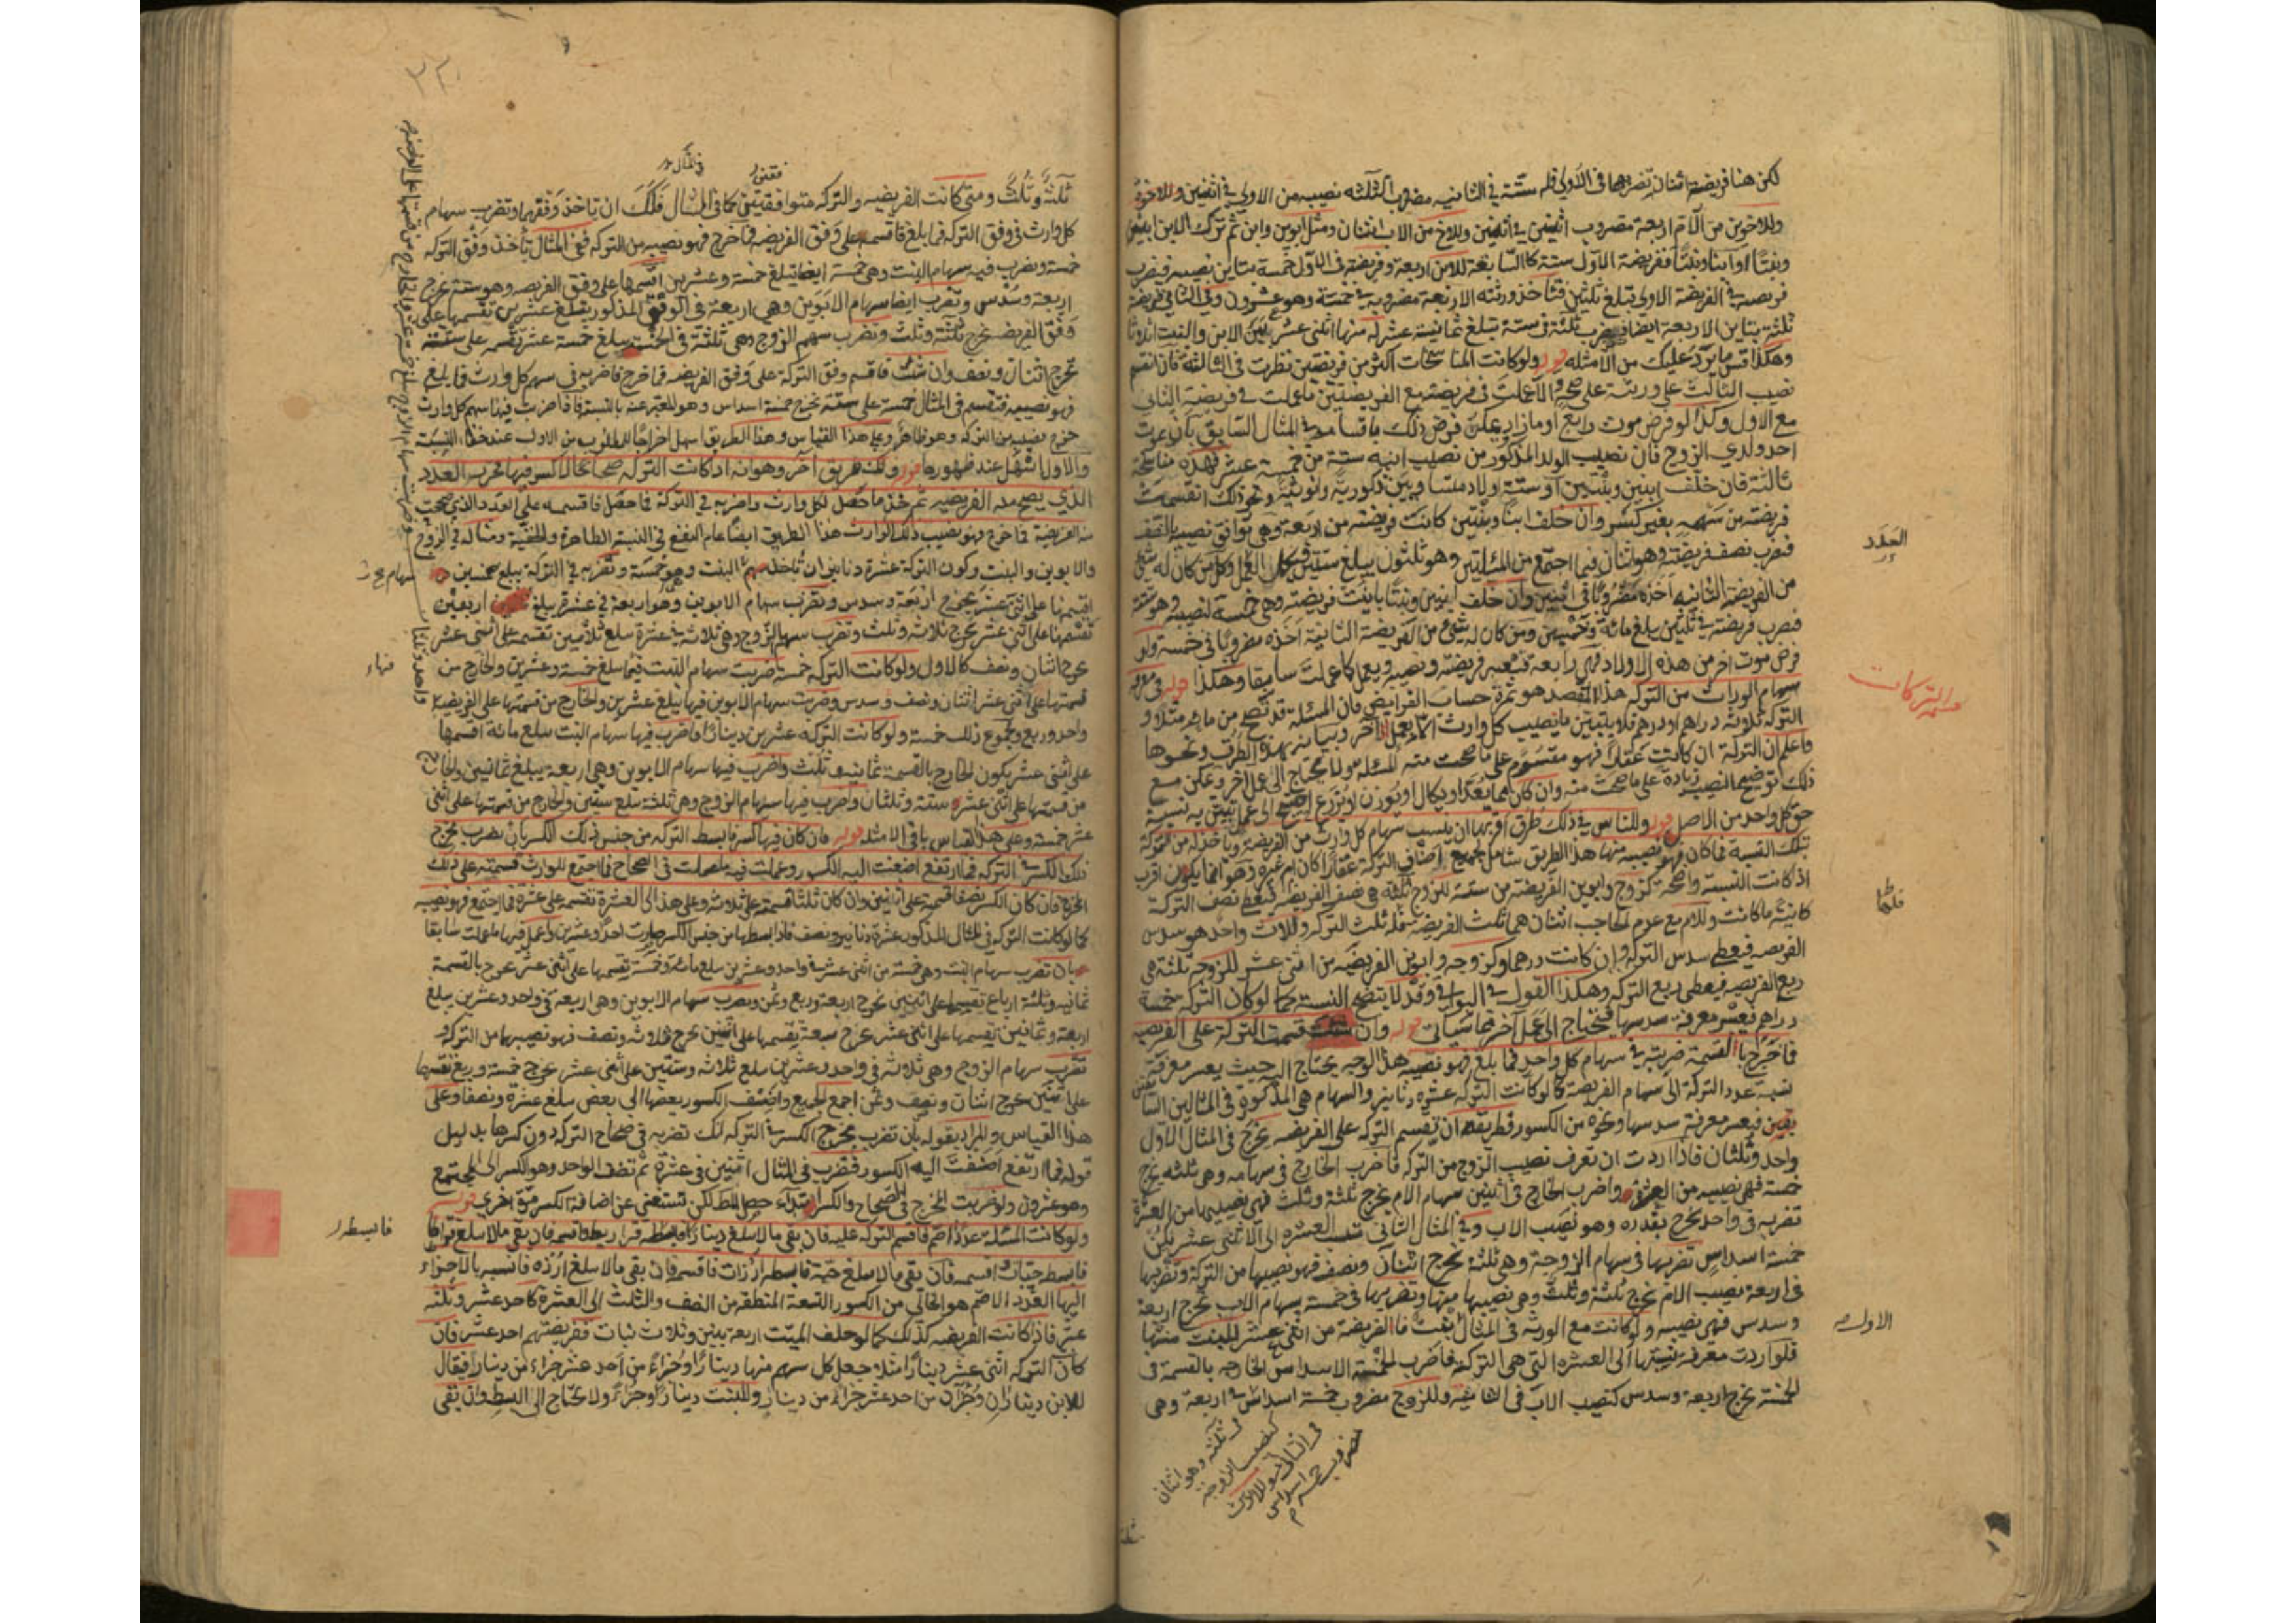 لكن هنا فريضته اثنان تضربها في الأولى فله ستة في الثانية مضروب الثلثه نصيبه من الاولى في اثنين وللاخوة
وللاخوين من الأم اربعة مضروب اثنين في اثنين وللاخ من الاب اثنان ومثل ابوين وابن ثم ترك الابن ابنين
وبنتا او ابنا وبنتا ففريضة الاول ستة كالسابقة للابن اربعة وفريضته في الاول خمسة تباين نصيبه فيضرب
فريضته في الفريضة الاولى تبلغ ثلثين فتأخذ ورثته الاربعة مضروبة في خمسة وهو عشرون وفي الثاني فريضته
ثلثة تباين الاربعة ايضا فيضرب ثلثة في ستة تبلغ ثمانية عشر له منها اثنى عشر بين الابن والبنت اثلاثا
وهكذا قس ما يرد عليك من الأمثله قوله ولو كانت المناسخات اكثر من فريضتين نظرت في الثالثة فان انقسم
نصيب الثالث على ورثته على صحة والا عملت في فريضته مع الفريضتين ما عملت في فريضة الثاني
مع الاول وكذا لو فرض موت رابع او ما زاد يمكن فرض ذلك باقسامه في المثال السابق بان يموت
احد ولدي الزوج فان نصيب الولد المذكور من نصيب ابيه ستة من خمسة عشر فهذه مناسخة
ثالثة فان خلف ابنين وبنتين او ستة اولاد متساويين ذكورية وانوثية ونحو ذلك انقسمت
فريضته من سهمه بغير كسر وان خلف ابنا وبنتين كانت فريضته من اربعة وهي توافق نصيبه بالنصف
فتضرب نصف فريضته وهو اثنان فيما اجتمع من المسئلتين وهو ثلثون يبلغ ستين فيكمل العمل وكل من كان له شئ
من الفريضة الثانيه اخذه مضروبا في اثنين وان خلف ابنين وبنتا باينت فريضته وهي خمسة لنصيبه وهو ستة
فتضرب فريضته في ثلثين يبلغ مائة وخمسين ومن كان له شئ من الفريضة الثانية اخذه مضروبا في خمسة ولو
فرض موت اخر من هذه الاولاد فهي رابعة فتعتبر فريضته ونصيبه ويعمل كما عملت سابقا وهكذا قوله في معرفة
سهام الوراث من التركه هذا المقصد هو ثمرة حساب الفرائض فان المسئلة قد تصح من مائة مثلا و
التركة ثلاثة دراهم او درهم فلا يتبين ما نصيب كل وارث الا بعمل اخر وبيانه بهذه الطرق ونحوها
واعلم ان التركة ان كانت عقارا فهو مقسوم على ما صحت منه المسئلة فلا يحتاج الى عمل اخر ويمكن مع
ذلك توضيح النصيب زيادة على ما صحت منه وان كان مما يعد او يكال او يوزن او يذرع احتيج الى عمل يتبين به نسبة
حق كل واحد من الاصل قوله وللناس في ذلك طرق اقربها ان ينسب سهام كل وارث من الفريضة ويأخذ له من التركة
بتلك النسبة فما كان فهو نصيبه منها هذا الطريق شامل لجميع اصناف التركة عقارا كان ام غيره وهو انما يكون اقرب
اذا كانت النسبة واضحة كزوج وابوين الفريضة من ستة للزوج ثلثة هي نصف الفريضة فيعطى نصف التركة
كائنة ما كانت وللام مع عدم الحاجب اثنان هما ثلث الفريضة فله ثلث التركه وللاب واحد هو سدس
الفريضه فيعطى سدس التركة وان كانت درهما وكزوجه وابوين الفريضه من اثنى عشر للزوجه ثلثة هي
ربع الفريضه فيعطى ربع التركه وهكذا القول في البواقي وقد لا يتضح النسبة كما لو كان التركه خمسة
دراهم فيعسر معرفة سدسها فتحتاج الى عمل اخر كما سيأتي قوله وان قسمت التركة على الفريضه
فما خرج بالقسمة ضربته في سهام كل واحد فما بلغ فهو نصيبه هذا الوجه يحتاج اليه حيث يعسر معرفة
نسبة عدد التركة الى سهام الفريضة كما لو كانت التركة عشرة دنانير والسهام هي المذكورة في المثالين السا
بقين فيعسر معرفة سدسها ونحوه من الكسور فطريقه ان تقسم التركه على الفريضه يخرج في المثال الاول
واحد وثلثان فاذا اردت ان تعرف نصيب الزوج من التركة فاضرب الخارج في سهامه وهي ثلثه يخرج
خمسة فهي نصيبه من العشرة واضرب الخارج في اثنين سهام الام يخرج ثلثة وثلث فهي نصيبها من العشرة
تضربه في واحد يخرج بقدره وهو نصيب الاب وفي المثال الثاني تنسب العشره الى الاثنى عشر يكون
خمسة اسداس تضربها في سهام الزوجة وهي ثلثة يخرج اثنان ونصف فهو نصيبها من التركة وتضربها
في اربعة نصيب الام يخرج ثلثة وثلث وهي نصيبها منها وتضربها في خمسة سهام الاب يخرج اربعة
وسدس فهي نصيبه ولو كانت مع الورثة في المثال بنت فالفريضة من اثنى عشر للبنت منها
فلو اردت معرفة نسبتها الى العشرة التي هي التركة فاضرب الخمسة الاسداس الخارجه بالقسمة في
الخمسة يخرج اربعة وسدس كنصيب الاب في الثانية وللزوج مضروب خمسة اسداس في اربعة وهي
العدد
قسمة التركات
فلها
الاولى
في ثلثه وهو اثنان
كنصيب الزوجة
في الثانى وللابوين
مضروب خمسة اسداس
في المثال
ثلثة وثلث ومتى كانت الفريضه والتركه متوافقتين كما في المثال فلك ان تاخذ وفقهما وتضرب سهام
كل وارث في وفق التركه فما بلغ فاقسمه على وفق الفريضه فما خرج فهو نصيبه من التركه ففي المثال تأخذ وفق التركه
خمسة وتضرب فيه سهام البنت وهي خمسة ايضا تبلغ خمسة وعشرين اقسمها على وفق الفريضه وهو ستة يخرج
اربعة وسدس وتضرب ايضا سهام الابوين وهي اربعة في الوفق المذكور يبلغ عشرين تقسمها على
وفق الفريضه يخرج ثلثة وثلث وتضرب سهم الزوج وهي ثلثة في الخمسة يبلغ خمسة عشر تقسم على ستة
يخرج اثنان ونصف وان شئت فاقسم وفق التركة على وفق الفريضه فما خرج فاضربه في سهم كل وارث فما بلغ
فهو نصيبه فتقسم في المثال خمسة على ستة يخرج خمسة اسداس وهو المعبر عنه بالنسبة فاذا ضربت فيها سهم كل وارث
خرج نصيبه من التركه وهو ظاهر وعلى هذا القياس وهذا الطريق اسهل اخراجا للمطلوب من الاول عند خفاء النسبة
والاول اسهل عند ظهورها قوله ولك طريق آخر وهو انه اذا كانت التركه صحاحا لا كسر فيها فحرر العدد
الذي يصح منه الفريضه ثم خذ ما حصل لكل وارث واضربه في التركة فما حصل فاقسمه على العدد الذي صحت
منه الفريضة فما خرج فهو نصيب ذلك الوارث هذا الطريق ايضا عام النفع في النسبة الظاهرة والخفية ومثاله في الزوج
والابوين والبنت وكون التركة عشرة دنانير ان تأخذ سهم البنت وهو خمسة وتضربه في التركة يبلغ خمسين
اقسمها على اثنى عشر يخرج اربعة وسدس وتضرب سهام الابوين وهو اربعة في عشرة يبلغ اربعين
تقسمها على اثنى عشر يخرج ثلاثة وثلث وتضرب سهم الزوج وهي ثلاثة في عشرة تبلغ ثلاثين تقسمه على اثنى عشر
يخرج اثنان ونصف كالاول ولو كانت التركه خمسة ضربت سهام البنت فيها تبلغ خمسة وعشرين والخارج من
قسمتها على اثنى عشر اثنان ونصف وسدس وضربت سهام الابوين فيها يبلغ عشرين والخارج من قسمتها على الفريضه
واحد وربع ومجموع ذلك خمسة ولو كانت التركه عشرين دينارا فاضرب فيها سهام البنت تبلغ مائة اقسمها
على اثنى عشر يكون الخارج بالقسمة ثمانية وثلث واضرب فيها سهام الابوين وهي اربعة يبلغ ثمانين والخارج
من قسمتها على اثنى عشر ستة وثلثان واضرب فيها سهام الزوج وهي ثلثة تبلغ ستين والخارج من قسمتها على اثنى
عشر خمسة وعلى هذا القياس باقي الامثلة قوله فان كان فيها كسر فابسط التركه من جنس ذلك الكسر بان تضرب مخرج
ذلك الكسر في التركه فما ارتفع اضفت اليه الكسر وعملت فيه ما عملت في الصحاح فما اجتمع للوارث قسمته على ذلك
المخرج فان كان الكسر نصفا قسمته على اثنين وان كان ثلثا قسمته على ثلاثة وعلى هذا الى العشرة تقسمه على عشرة فما اجتمع فهو نصيبه
كما لو كانت التركه في المثال المذكور عشرة دنانير ونصف فاذا بسطتها من جنس الكسر صارت احدا وعشرين واعمل فيها ما عملت سابقا
بان تضرب سهام البنت وهي خمسة من اثنى عشر في واحد وعشرين تبلغ مائة وخمسة تقسمها على اثنى عشر يخرج بالقسمة
ثمانية وثلثة ارباع تقسمها على اثنين يخرج اربعة وربع وثمن وتضرب سهام الابوين وهي اربعة في واحد وعشرين يبلغ
اربعة وثمانين تقسمها على اثنى عشر يخرج سبعة تقسمها على اثنين يخرج ثلاثة ونصف فهو نصيبها من التركة و
تضرب سهام الزوج وهي ثلاثة في واحد وعشرين تبلغ ثلاثة وستين على اثنى عشر يخرج خمسة وربع تقسمها
على اثنين يخرج اثنان ونصف وثمن اجمع الجميع واضف الكسور بعضها الى بعض تبلغ عشرة ونصفا وعلى
هذا القياس والمراد بقوله بان تضرب مخرج الكسر في التركه انك تضربه في صحاح التركه دون كسرها بدليل
قوله فما ارتفع اضفت اليه الكسور فتضرب في المثال اثنين في عشرة ثم تضف الواحد وهو الكسر الى المجتمع
وهو عشرون ولو ضربت المخرج في الصحاح والكسر ابتداء حصل المطلـ لكن تستغنى عن اضافة الكسر مرة اخرى قوله
ولو كانت المسئلة عددا اصم فاقسم التركه عليه فان بقى ما لا يبلغ دينارا فابسطه قراريط واقسمه فان بقى ما لا يبلغ قيراطا
فابسطه حبات واقسمه فان بقى ما لا يبلغ حبة فابسطه ارزات فاقسمه فان بقى ما لا يبلغ ارزه فانسبه بالاجزاء
اليها العدد الاصم هو الخالي من الكسور التسعة المنطقه من النصف والثلث الى العشرة كاحد عشر وثلثه
عشر فاذا كانت الفريضه كذلك كما لو خلف الميت اربعة بنين وثلاث بنات ففريضتهم احد عشر فان
كان التركه اثنى عشر دينارا مثلا جعل كل سهم منها دينارا وجزاء من احد عشر جزاء من دينار فيقال
للابن ديناران وجزآن من احد عشر جزاء من دينار وللبنت دينار وجزاء ولا يحتاج الى البسط وان بقى
فابسطه